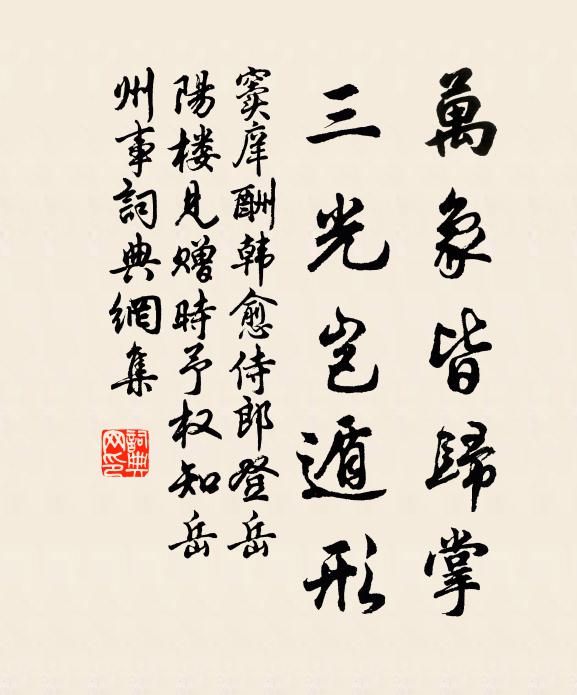 萬象皆歸掌
三光岂遁形
窦庠酬韩愈侍郎登岳
陽楼見赠時予权知岳
州事詞典網集
詞典網印